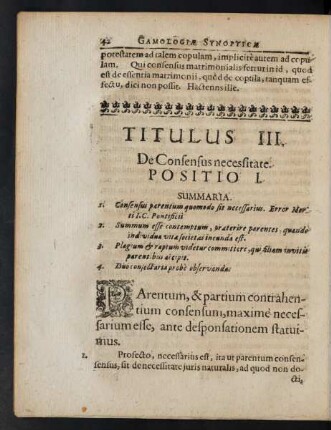 42 GAMOLOGIÆ SYNOPTICÆ
potestatem ad talem copulam, implicitè autem ad copu-
lam. Qui consensus matrimonialis fertur in id, quod
est de essentia matrimonii, quòd de coptila, tanquam ef-
fectu, dici non possit. Hactenus ille.
TITULUS III.
De Consensus necessitate.
POSITIO I.
SUMMARIA.
1. Consensus parentium quomodo sit necessarius. Error
I.C. Pontificii
2. Summum esse contemptum, præterire parentes, quando
individua vitæ societas ineunda est.
3. Plagium & raptum videtur committere, qui filiam invitis
parentibus accipit.
4. Duo consectaria probè observanda.
PArentum, & partium contrahen-
tium consensum, maximè neces-
sarium esse, ante desponsationem statui-
mus.
1. Profecto, necessarius est, ita ut parentum consen-
sensus, sit de necessitate juris naturalis, ad quod non do-
cti,